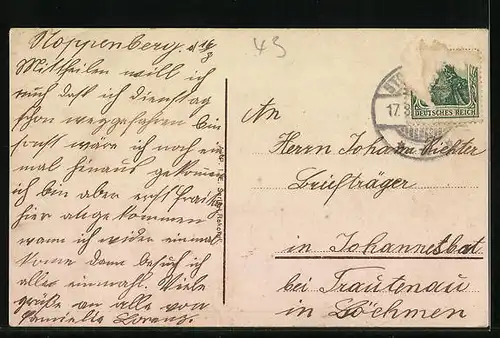 Stoppenberg. d 16/3
Mittheilen will ich
euch daß ich dienstag
schon weggefahren bin
sonst wäre ich noch ein
mal hinaus gekomme
ich bin aber erst
hier angekommen
wann ich wider einmal
kome dann besuch ich
alles einmahl. Viele
grüße an alle von
Familie Lorenz.
43
DEUTSCHES REICH
17.3
An
Herrn Johann Richter
Briefträger
in Johannesbad
bei Trautenau
in Böehmen